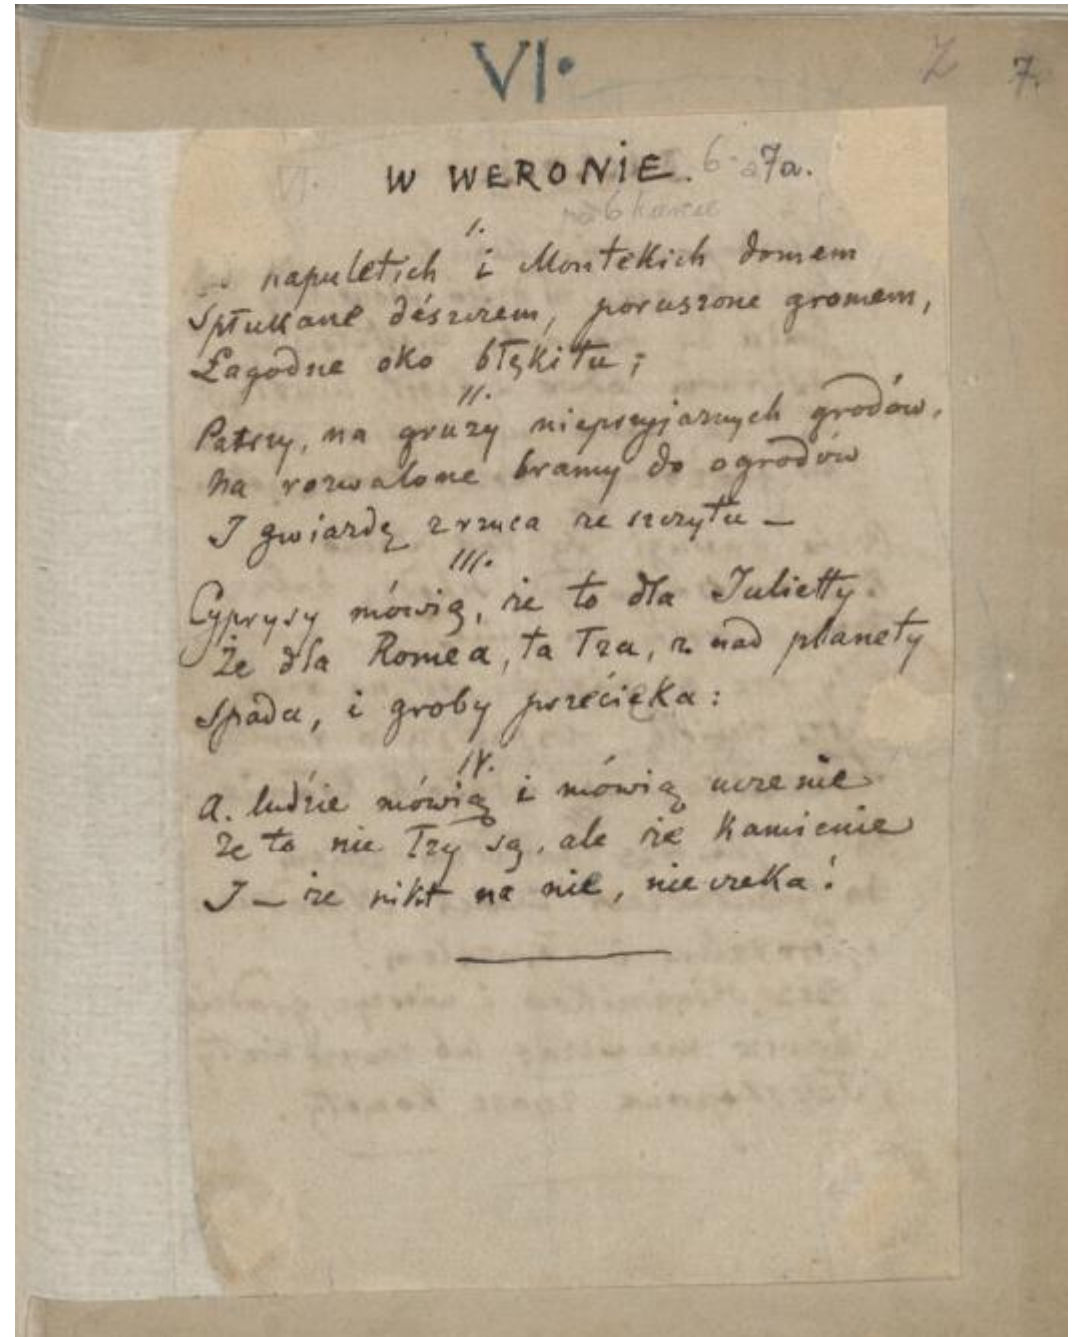 VI.
7.
W WERONIE. 6 7a.
I.
napuletich i Montekich domem
Spłukane dészczem, poruszone gromem,
Łagodne oko błękitu;
II.
Patrzy, na gruzy nieprzyjaznych grodów,
Na rozwalone bramy do ogrodów
I gwiazdę zrzuca ze szczytu —
III.
Cyprysy mówią, że to dla Julietty.
Że dla Romea, ta łza, z nad planety
Spada, i groby przécieka:
IV.
A. ludzie mówią i mówią uczenie
Że to nie łzy są, ale że kamienie
I — że nikt na nie, nie czeka!